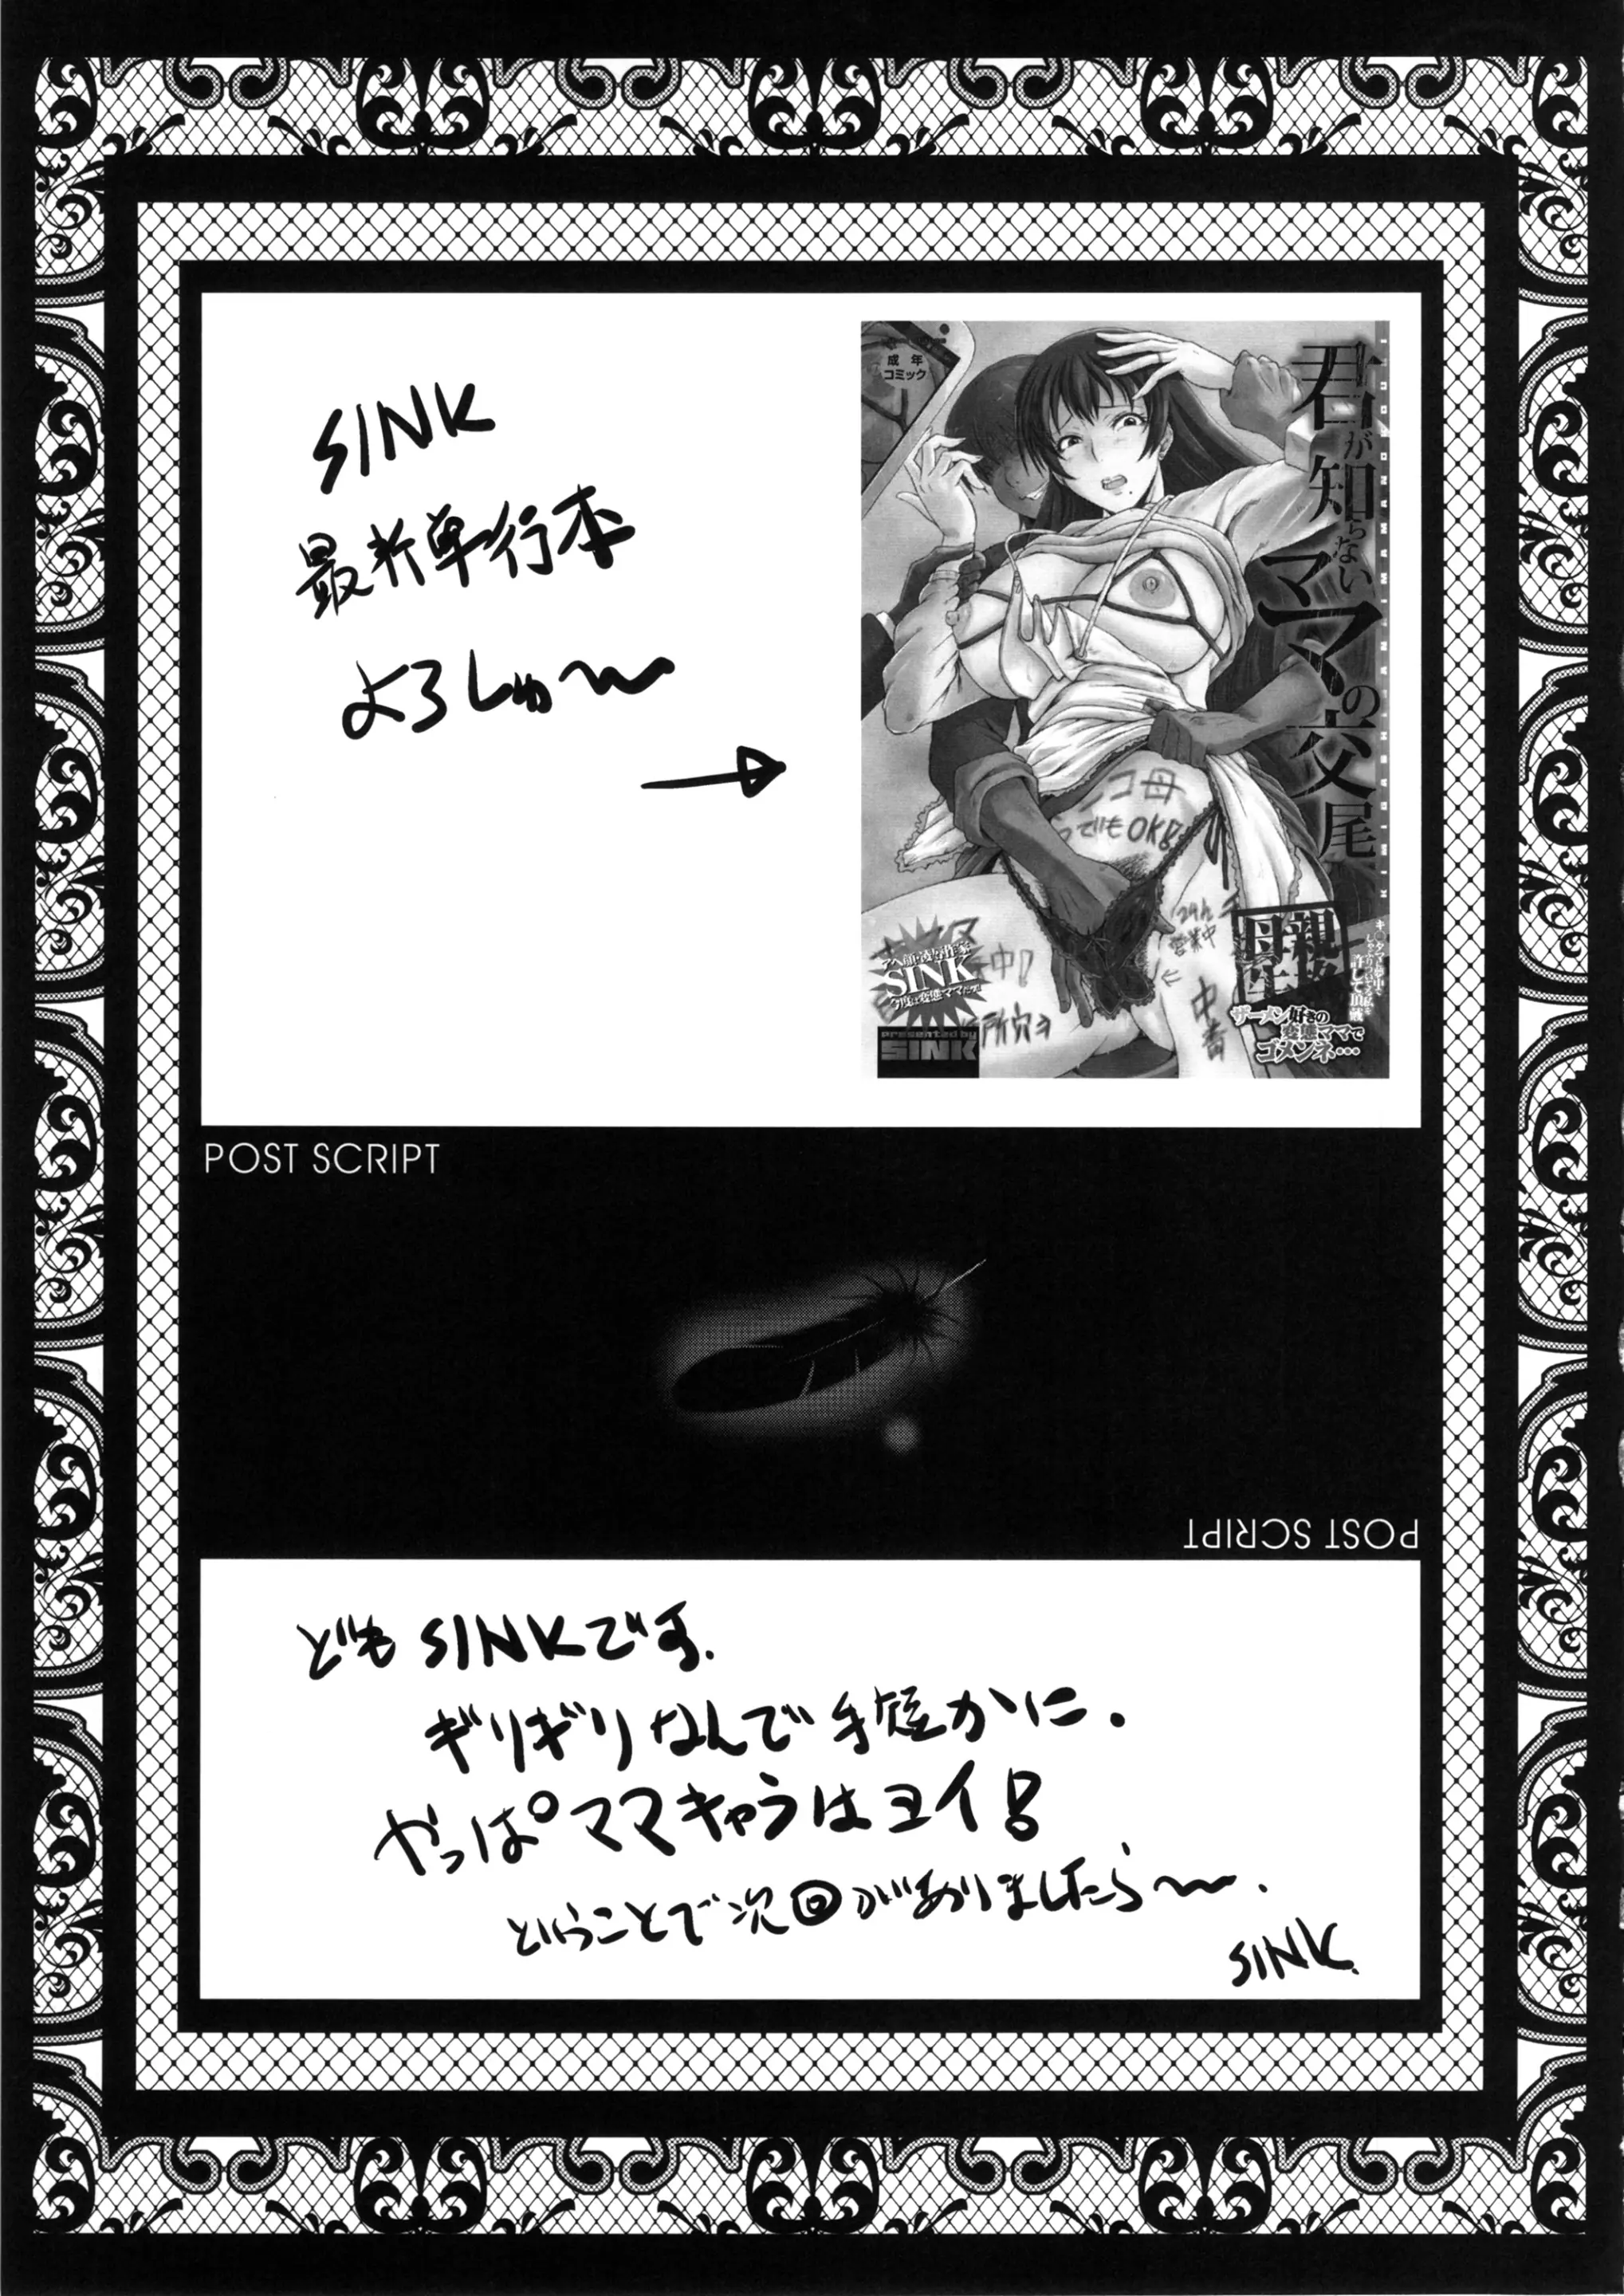 SINK
最新単行本
よろしゅ〜
成年
コミック
君が知らないママの交尾
母
でもOK!
営業中
SINK
presented by
SINK
ザーメン好きの
変態ママで
ゴメンネ…
POST SCRIPT
POST SCRIPT
どもSINKです.
ギリギリなんで手短かに.
やっぱママキャラはヨイ!
ということで次回がありましたら〜.
SINK.